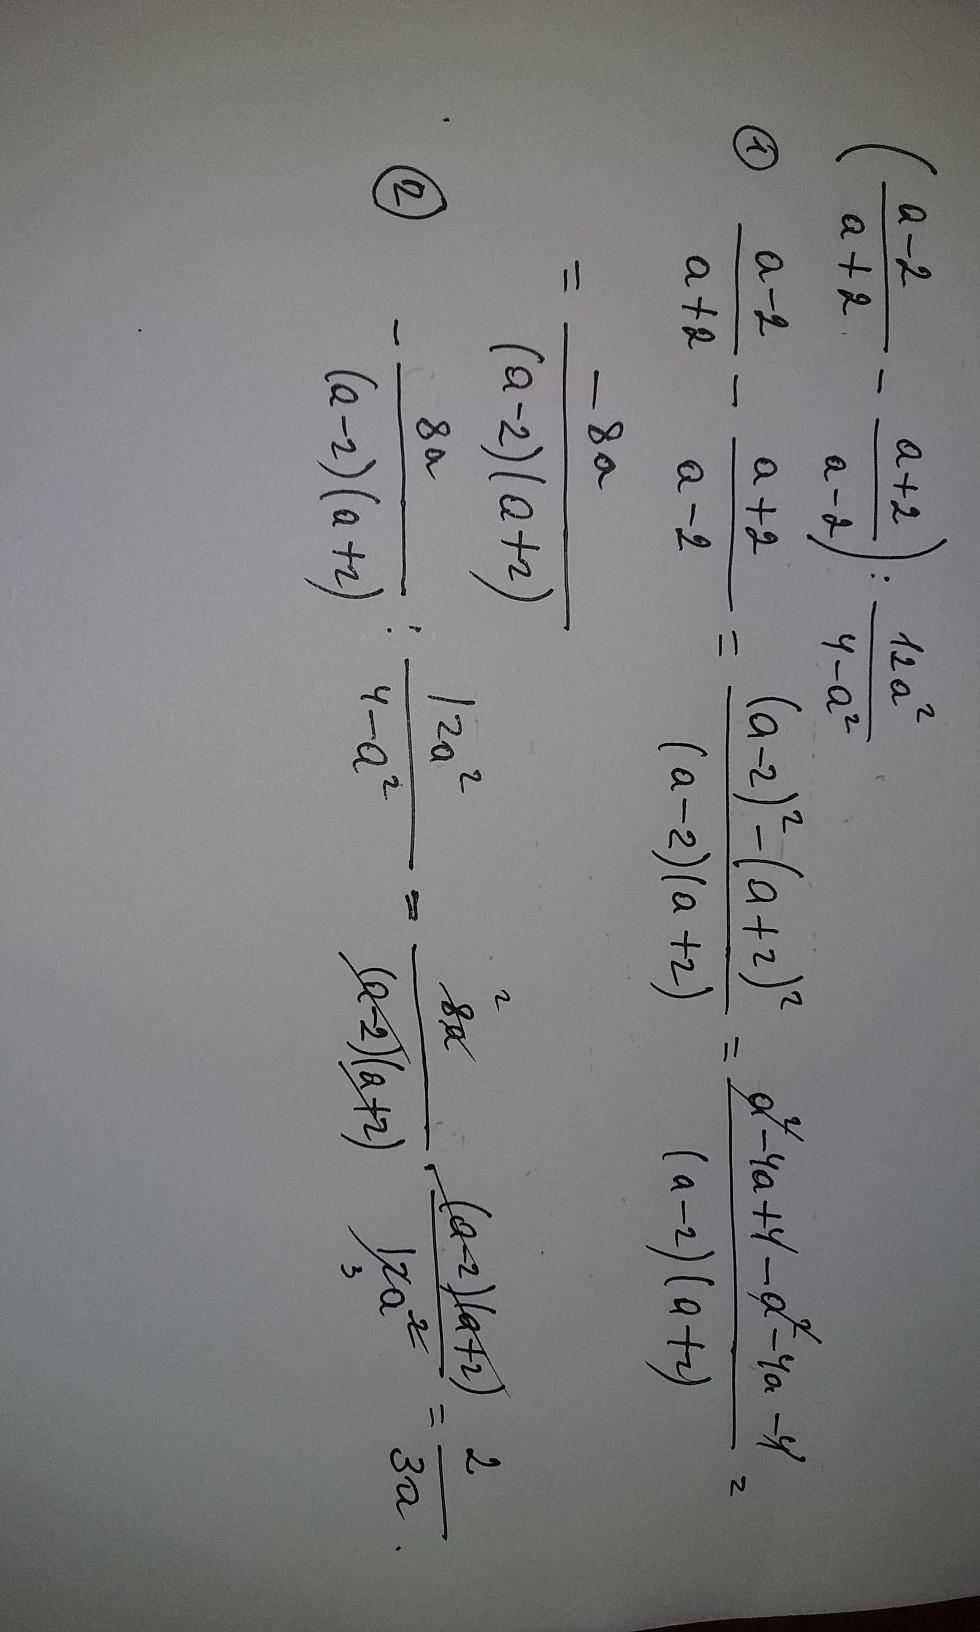 (a-2/a+2 - a+2/a-2) : 12a²/4-a²
① a-2/a+2 - a+2/a-2 = (a-2)²-(a+2)²/(a-2)(a+2) = a²-4a+4-a²-4a-4/(a-2)(a+2) =
= -8a/(a-2)(a+2)
② - 8a/(a-2)(a+2) : 12a²/4-a² = 8a 2/(a-2)(a+2) · (a-2)(a+2)/12a² 3 = 2/3a.